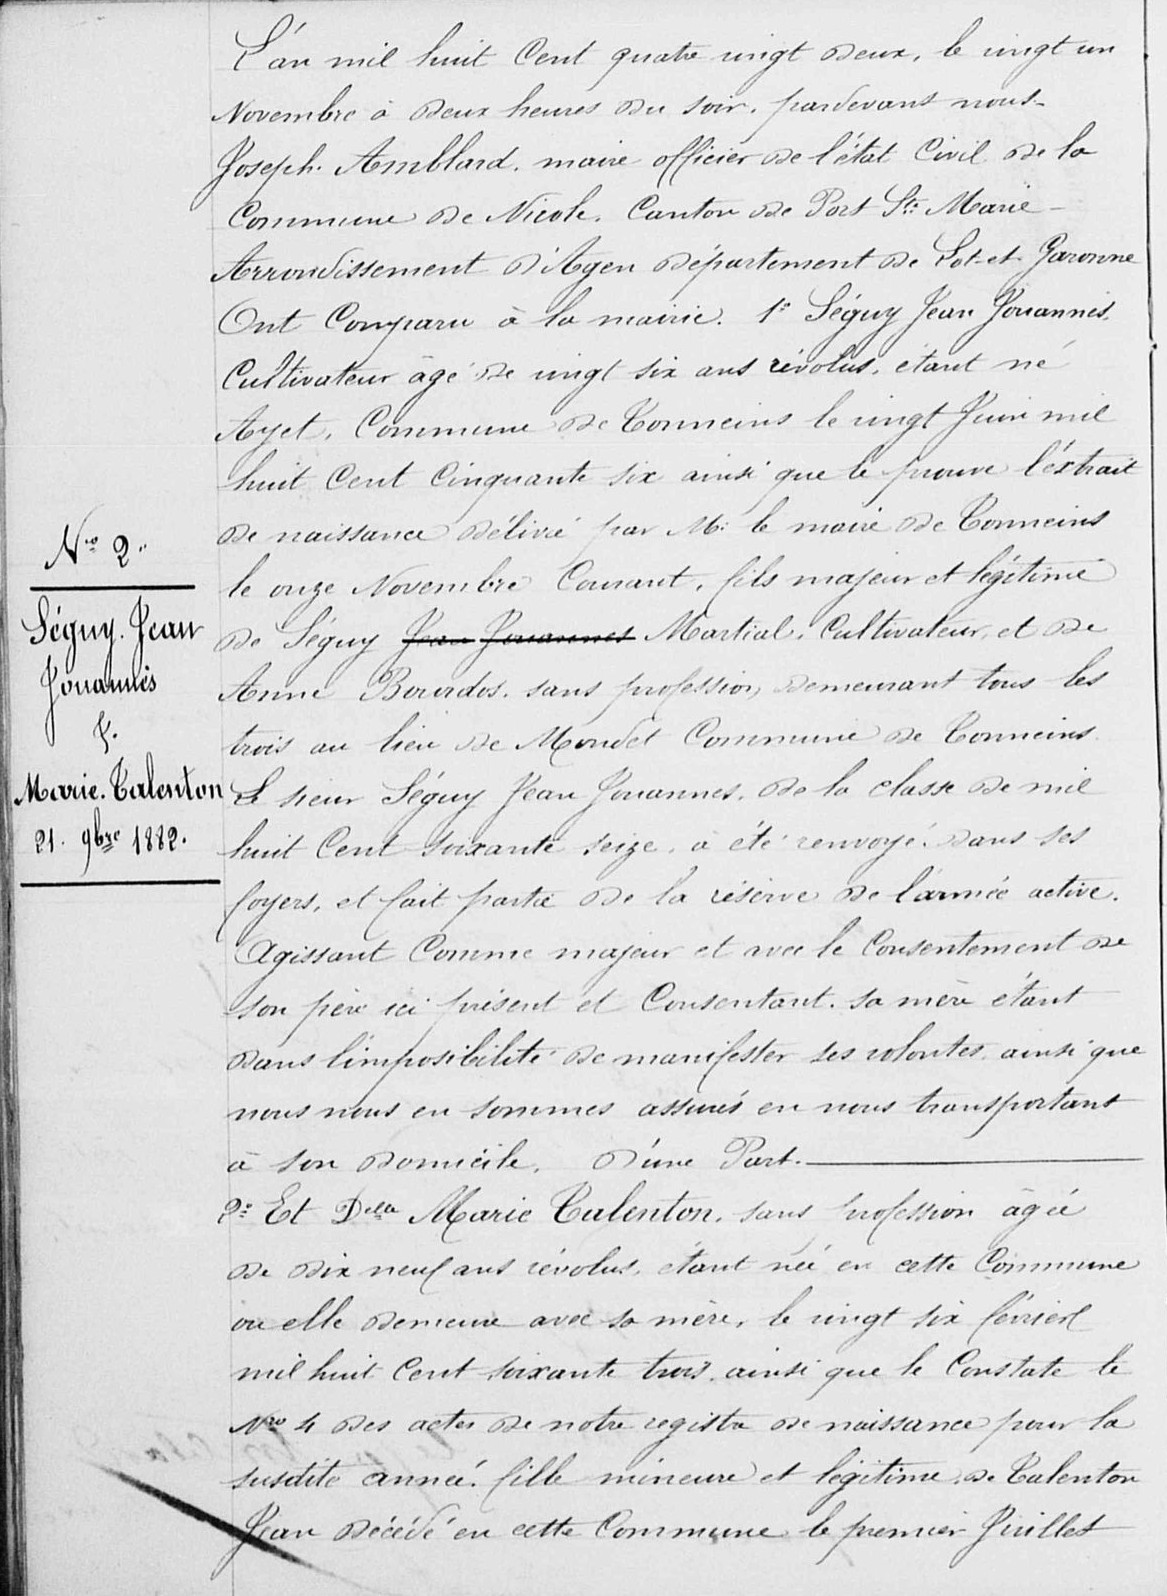 L'an mil huit Cent quatre vingt deux, le vingt un
Novembre à deux heures du soir, pardevant nous
Joseph Amblard, maire officier de l'état Civil de la
Commune de Nicole, Canton de Port Ste Marie
Arrondissement d'Agen département de Lot-et-Garonne
Ont Comparu à la mairie. 1° Séguy Jean Jouannes.
Cultivateur âgé de vingt six ans révolus, étant né
Ayet, Commune de Tonneins le vingt Juin mil
huit Cent Cinquante six ainsi que le prouve l'éxtrait
de naissance délivré par Mr le maire de Tonneins
le onze Novembre Courant, fils majeur et légitime
de Séguy Jean Jouannes Martial, Cultivateur, et de
Anne Bourdos, sans profession, demeurant tous les
trois au lieu de Mondet Commune de Tonneins.
Le sieur Séguy Jean Jouannes, de la classe de mil
huit Cent soixante seize, a été renvoyé dans ses
foyers, et fait partie de la réserve de l'armée active.
Agissant Comme majeur et avec le Consentement de
son père ici présent et Consentant. sa mère étant
dans l'imposibilité de manifester ses volontes, ainsi que
nous nous en sommes assurés en nous transportant
à son domicile, d'une Part.
2° Et Delle Marie Talenton, sans profession âgée
de dix neuf ans révolus, étant née en cette Commune
ou elle demeure avec sa mère, le vingt six février
mil huit Cent soixante trois, ainsi que le Constate le
Nro 4 des actes de notre registre de naissance pour la
susdite année. fille mineure et légitime de Talenton
Jean décédé en cette Commune le premier Juillet
Nro 2.
Séguy. Jean
Jouannès
&.
Marie. Talenton
21. 9bre 1882.